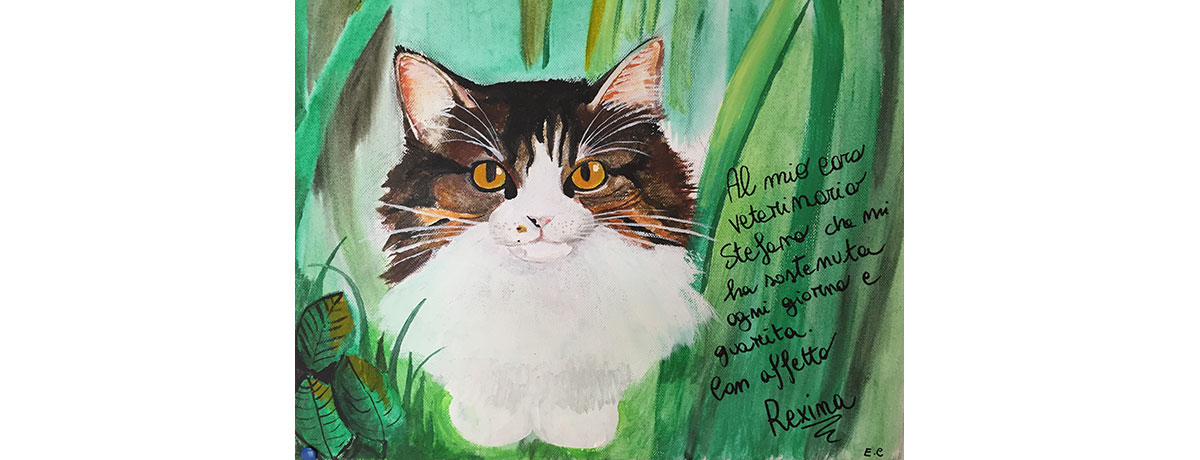 Al mio caro
veterinario
Stefano che mi
ha sostenuta
ogni giorno e
guarita.
Con affetto
Rexima
E.C